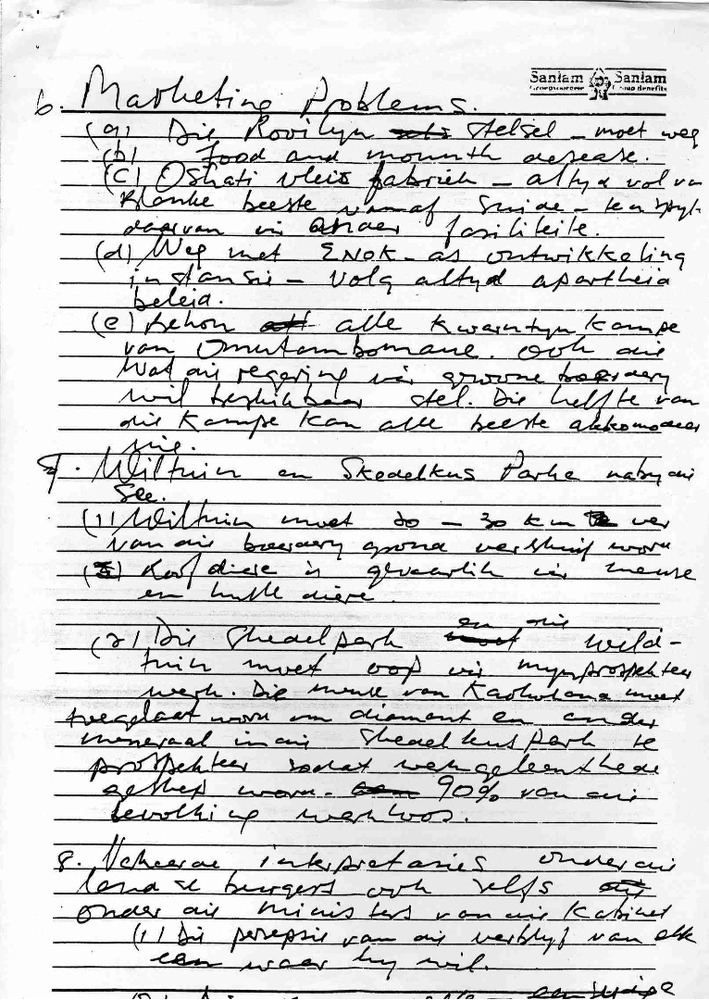 Sanlam Sanlam
Groepvoordele Group Benefits
6. Marketing Problems.
(a) Die Rooilyn stelsel – moet weg
(b) Food and mounth desease.
(c) Oshati vleis fabriek – altyd vol van
Blanke beeste vanaf Suide – ten spyt
daarvan is ander fasiliteite.
(d) Weg met ENOK – as ontwikkeling
instansie – Volg altyd apartheid
beleid.
(e) Behou alle kwarntyn kampe
van Omutambomawe. Ook die
wat die regering vir groone boerdery
wil beskikbaar stel. Die helfte van
die kampe kan alle beeste akkomodeer
nie.
7. Wiltuin en Skedelkus Parke naby die
See.
(1) Wiltuin moet 20 – 30 km ver
van die boerdery grond verskuif word
Roof diere is gevaarlik vir mense
en hulle diere.
en die
(2) Die Skedelpark wild-
tuin moet oop vir mynprospekteer
werk. Die mense van Kaokoland moet
toegelaat word om diamant en ander
mineraal in die Skedelkus Park te
prospekteer sodat werkgeleenthede
geskep word. 90% van die
bevolking werkloos.
8. Verkeerde interpretasies onder die
landse burgers ook selfs
onder die Ministers van die Kabinet
(1) Die persepsie van die verblyf van elk
een waar hy wil.